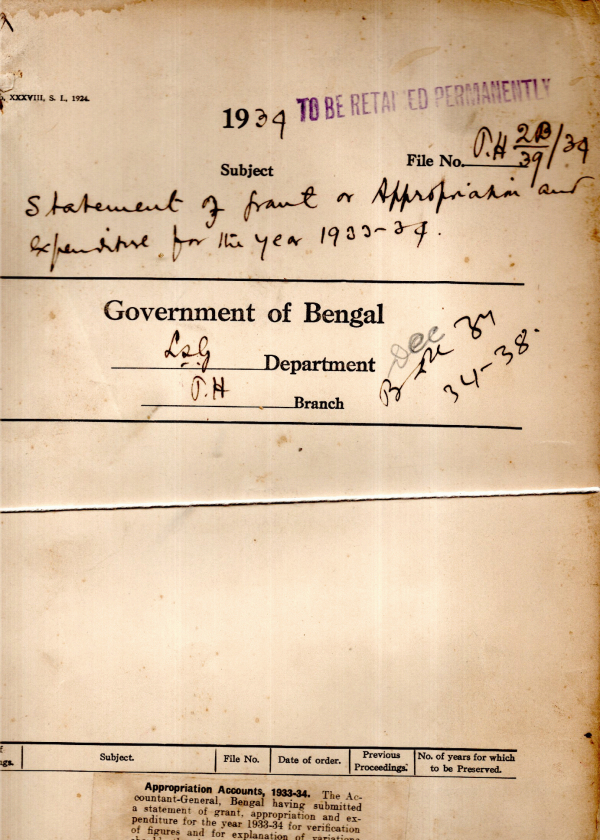 XXXVIII, S. I., 1924.
1934 TO BE RETAINED PERMANENTLY
File No. P.H 2B/39/34
Subject
Statement of grant or Appropriation and
expenditure for the year 1933-34.
Government of Bengal
LSG Department
P.H Branch
Dec 34
34-38.
Subject. File No. Date of order. Previous Proceedings. No. of years for which to be Preserved.
Appropriation Accounts, 1933-34. The Ac-
countant-General, Bengal having submitted
a statement of grant, appropriation and ex-
penditure for the year 1933-34 for verification
of figures and for explanation of variations